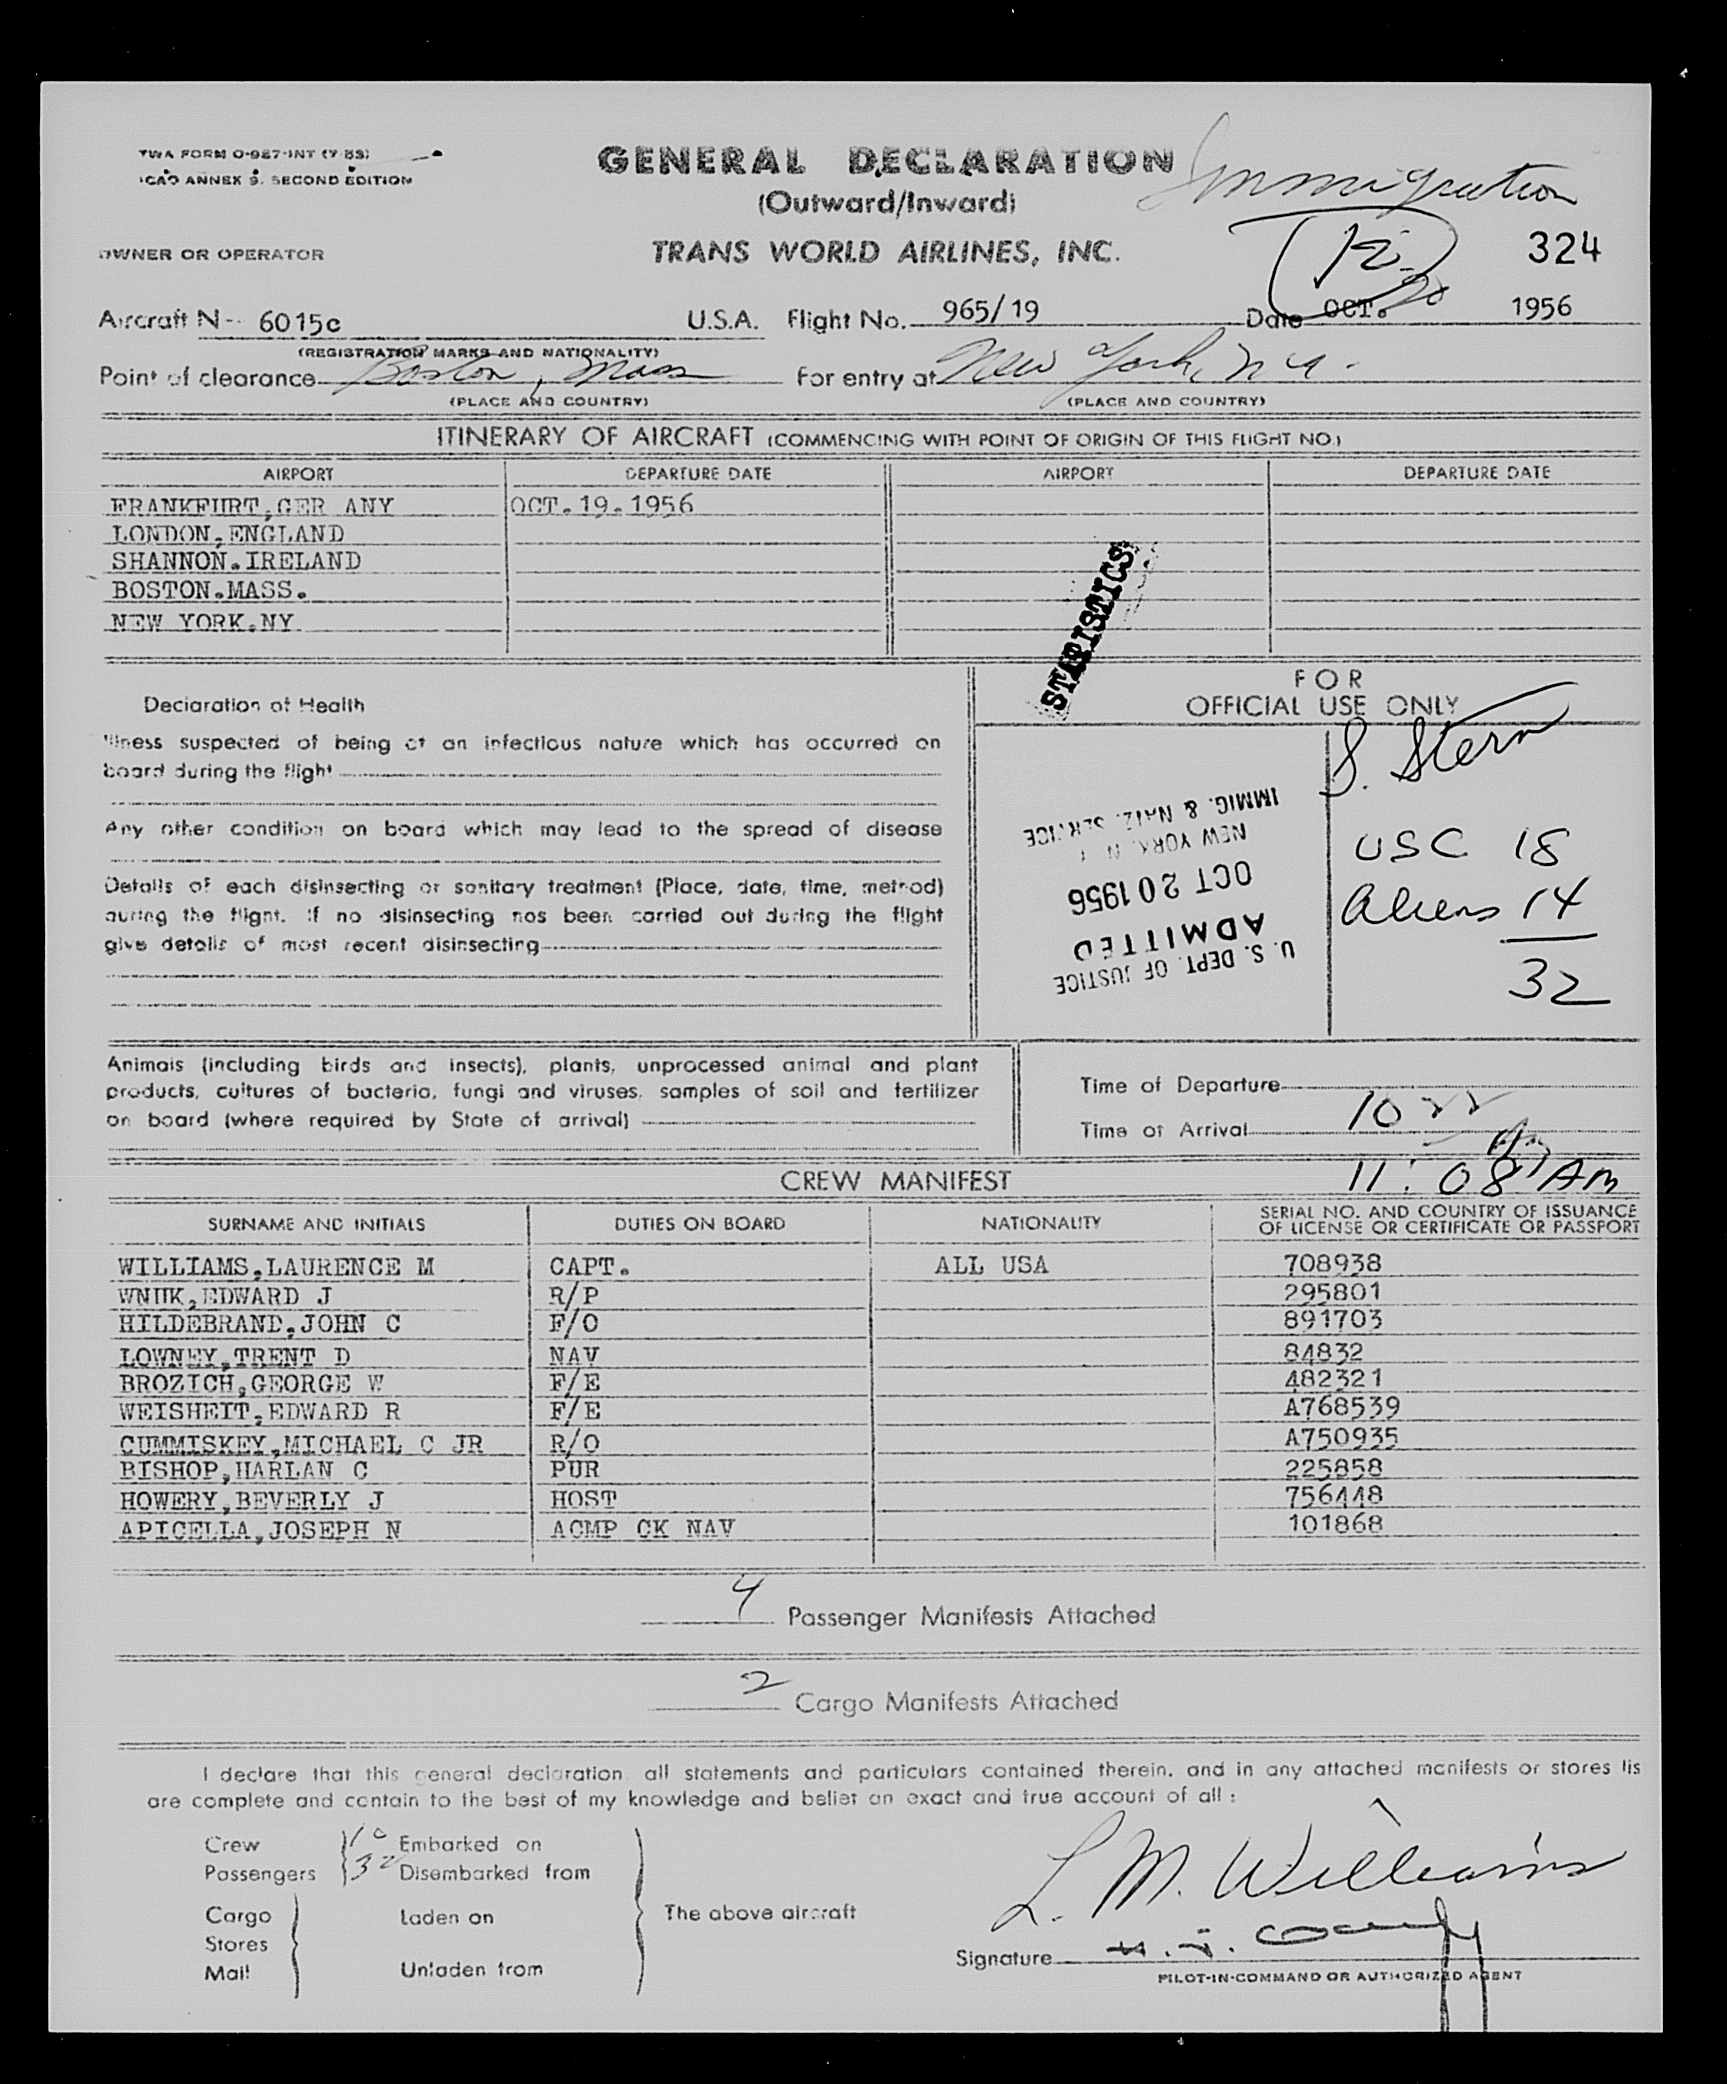 TWA FORM O-987-INT (7-53)
ICAO ANNEX 9. SECOND EDITION
GENERAL DECLARATION
(Outward/Inward)
Immigration
OWNER OR OPERATOR
TRANS WORLD AIRLINES, INC.
324
Aircraft N-- 6015c U.S.A. Flight No. 965/19 Date OCT. 20 1956
(REGISTRATION MARKS AND NATIONALITY)
Point of clearance Boston, Mass For entry at New York, N Y.
(PLACE AND COUNTRY) (PLACE AND COUNTRY)
ITINERARY OF AIRCRAFT (COMMENCING WITH POINT OF ORIGIN OF THIS FLIGHT NO.)
AIRPORT DEPARTURE DATE AIRPORT DEPARTURE DATE
FRANKFURT,GER ANY OCT.19.1956
LONDON,ENGLAND
SHANNON.IRELAND
BOSTON.MASS.
NEW YORK.NY
STATISTICS
FOR
OFFICIAL USE ONLY
Declaration of Health
Illness suspected of being of an infectious nature which has occurred on
board during the flight
Any other condition on board which may lead to the spread of disease
Details of each disinsecting or sanitary treatment (Place, date, time, method)
during the flight. If no disinsecting has been carried out during the flight
give details of most recent disinsecting
U. S. DEPT. OF JUSTICE
ADMITTED
OCT 20 1956
NEW YORK, N. Y.
IMMIG. & NATZ. SERVICE
S. Stern
USC 18
Aliens 14
32
Animals (including birds and insects), plants, unprocessed animal and plant
products, cultures of bacteria, fungi and viruses, samples of soil and fertilizer
on board (where required by State of arrival)
Time of Departure
Time of Arrival 10 22
11:08 AM
CREW MANIFEST
SURNAME AND INITIALS DUTIES ON BOARD NATIONALITY SERIAL NO. AND COUNTRY OF ISSUANCE
OF LICENSE OR CERTIFICATE OR PASSPORT
WILLIAMS,LAURENCE M CAPT. ALL USA 708938
WNUK,EDWARD J R/P 295801
HILDEBRAND,JOHN C F/O 891703
LOWNEY,TRENT D NAV 84832
BROZICH,GEORGE W F/E 482321
WEISHEIT,EDWARD R F/E A768539
CUMMISKEY,MICHAEL C JR R/O A750935
BISHOP,HARLAN C PUR 225858
HOWERY,BEVERLY J HOST 756448
APICELLA,JOSEPH N ACMP CK NAV 101868
4 Passenger Manifests Attached
2 Cargo Manifests Attached
I declare that this general declaration all statements and particulars contained therein, and in any attached manifests or stores lis
are complete and contain to the best of my knowledge and belief an exact and true account of all :
Crew 10 Embarked on
Passengers 32 Disembarked from
Cargo Laden on The above aircraft
Stores
Mail Unladen from
L. M. Williams
Signature
PILOT-IN-COMMAND OR AUTHORIZED AGENT